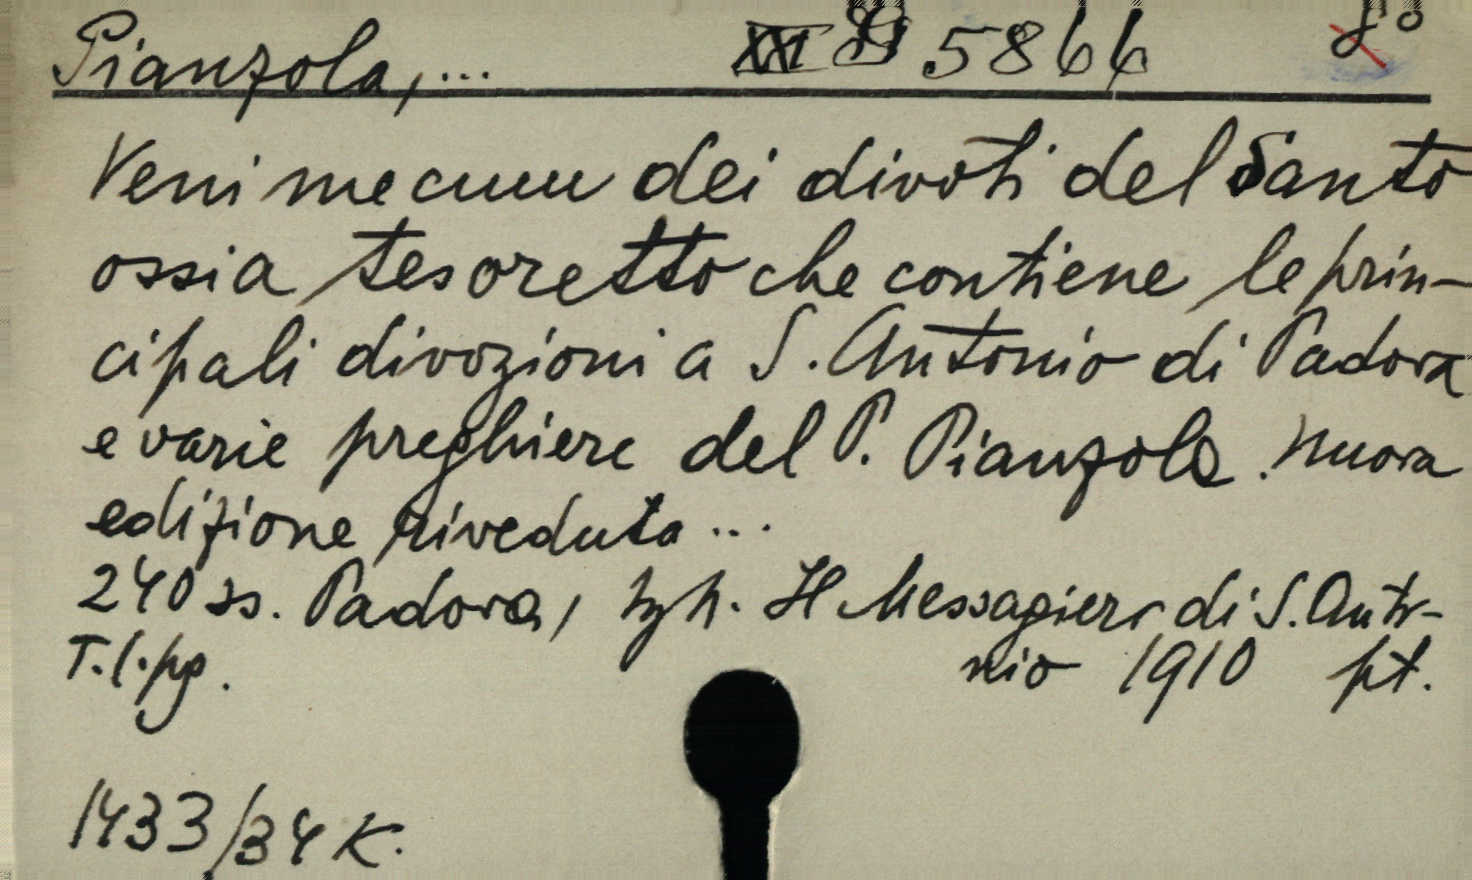 Pianzola, ... 5866 8°
Veni mecum dei divoti del Santo
ossia tesoretto che contiene le prin-
cipali divozioni a S. Antonio di Padova
e varie preghiere del P. Pianzola. Nuova
edizione riveduta ...
240 ss. Padova, Il Messagiero di S. Anto-
nio 1910 pt.
T.l.pg.
1433/34 K.